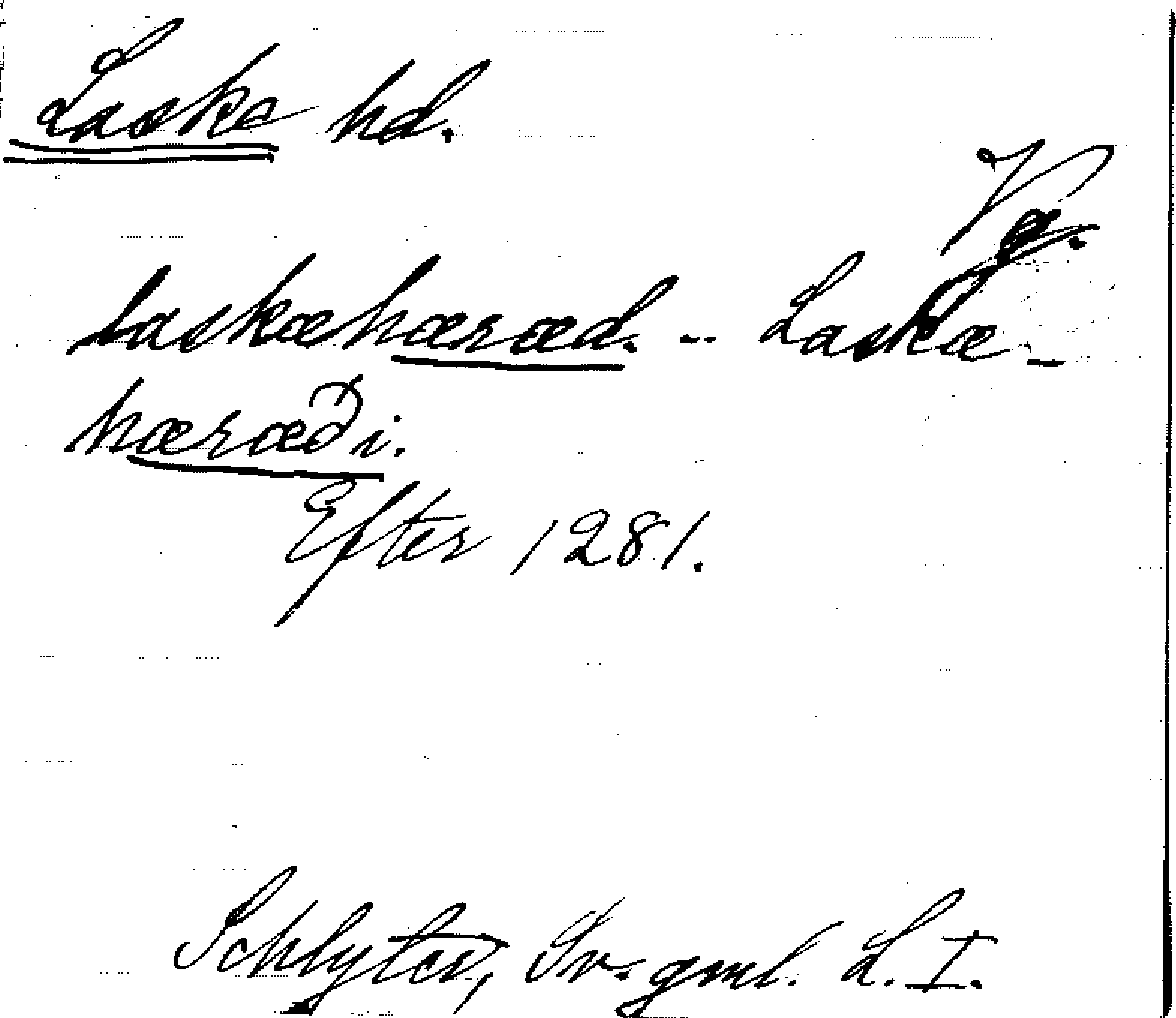 Laske hd.
Vg.
laskæhæræd. -- Laskæ-
hæræði.
Efter 1281.
Schlyter, Sv. gml. L. I.